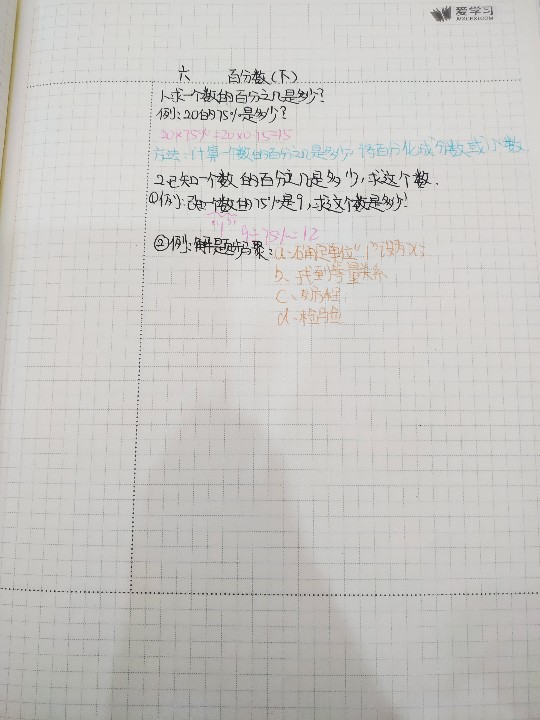 爱学习
六 百分数(下)
1.求一个数的百分之几是多少?
例:20的75%是多少?
20×75%=20×0.75=15
方法:计算一个数的百分之几是多少,将百分化成分数或小数
2.已知一个数的百分之几是多少,求这个数.
①例:已知一个数的75%是9,求这个数是多少?
9÷75%=12
②例:解题步骤:a.确定单位"1"设为x;
b、找到等量关系
c、列方程
d、检验